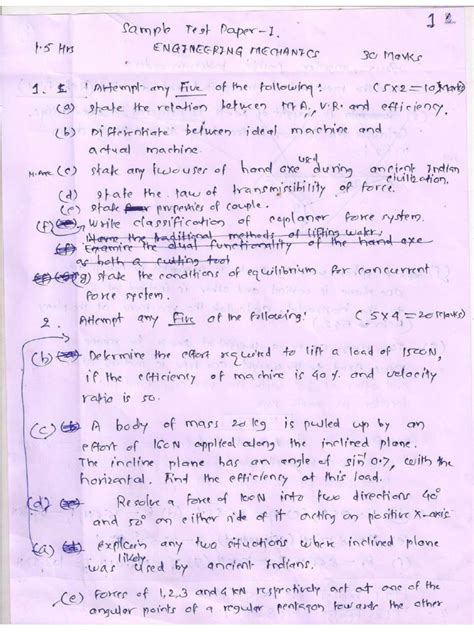 1
Sample Test Paper-I.
1.5 Hrs ENGINEERING MECHANICS 30 Marks
1. Attempt any Five of the following: (5x2=10 Marks)
(a) State the relation between M.A., V.R. and efficiency.
(b) Differentiate between ideal machine and
actual machine.
(c) state any two uses of hand axe used during ancient Indian
civilization.
(d) State the law of transmissibility of force.
(e) state properties of couple.
(f) Write classification of coplaner force system.
Name the traditional methods of lifting water.
(f) Examine the dual functionality of the hand axe
as both a cutting tool
(g) state the conditions of equilibrium for concurrent
force system.
2. Attempt any Five of the following: (5x4=20 Marks)
(b) Determine the effort required to lift a load of 1500N,
if the efficiency of machine is 40 %. and velocity
ratio is 50.
(c) A body of mass 20 kg is pulled up by an
effort of 160N applied along the inclined plane.
The incline plane has an angle of sin⁻¹ 0.7, with the
horizontal. Find the efficiency at this load.
(d) Resolve a force of 100N into two directions 40°
and 52° on either side of it acting on positive X-axis
(a) explain any two situations where inclined plane
was likely used by ancient Indians.
(e) Forces of 1,2,3 and 4 KN respectively act at one of the
angular points of a regular pentagon towards the other